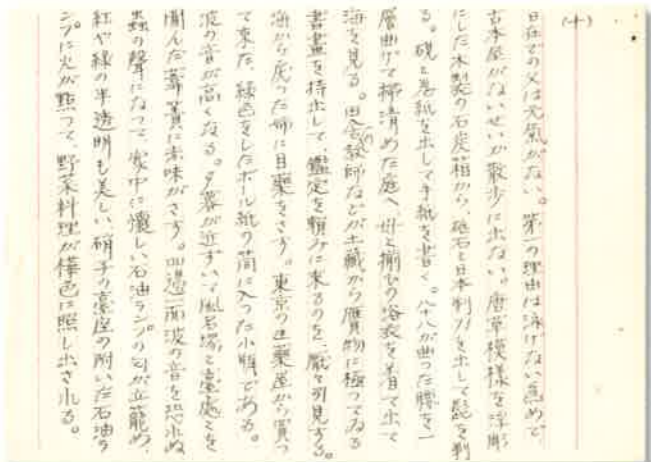 (十)
日在での父は元氣がない。第一の理由は泳げない為めで
古本屋がないせいか散歩に出ない。唐草模様を浮彫
にした木製の石炭箱から、砥石と日本剃刀を出して髭を剃
る。硯と巻紙を出して手紙を書く。八十八が曲つた腰を一
層曲げて掃清めた庭へ、母と揃ひの浴衣を着て出て
海を見る。田舎の教師などが土藏から贋物に極つてゐる
書畫を持出して、鑑定を頼みに来るのを、厭々引見する。
海から戻つた姉に目薬をさす。東京の薬屋から買つ
て来た、緑色をしたボール紙の筒に入つた小瓶である。
波の音が高くなる。夕暮が近ずいて風呂塚と臺處とを
圍んだ葦簀に赤味がさす。四邊一面波の音を恐れぬ
蟲の聲になつて、家中に懐しい石油ランプの匂が立籠め、
紅や緑の半透明も美しい硝子の臺座の附いた石油ラ
ンプに火が點つて、野菜料理が樺色に照し出される。